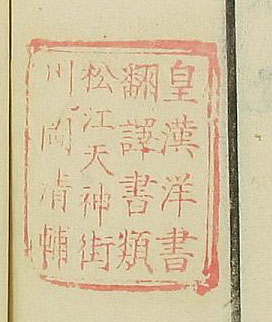 皇漢洋書
翻譯書類
松江天神街
川岡清輔